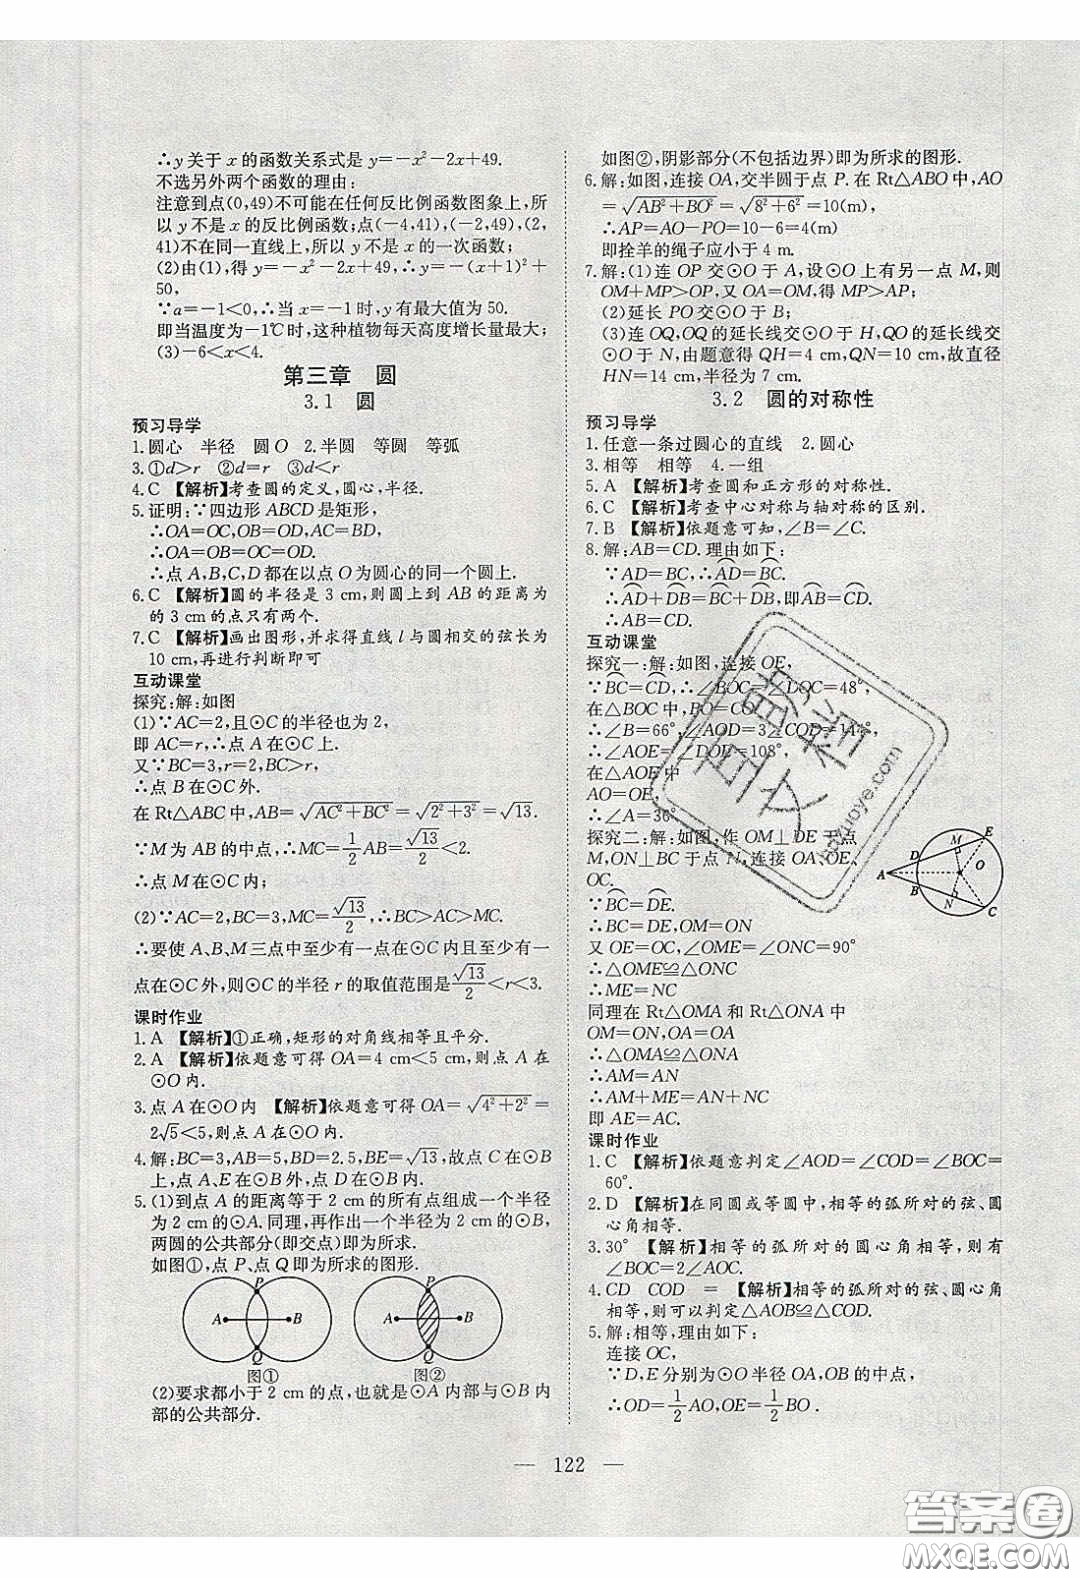 ∴y关于x的函数关系式是y=-x²-2x+49.
不选另外两个函数的理由:
注意到点(0,49)不可能在任何反比例函数图象上,所
以y不是x的反比例函数;点(-4,41),(-2,49),(2,
41)不在同一直线上,所以y不是x的一次函数;
(2)由(1),得y=-x²-2x+49,∴y=-(x+1)²+
50,
∵a=-1<0,∴当x=-1时,y有最大值为50.
即当温度为-1℃时,这种植物每天高度增长量最大;
(3)-6<x<4.
第三章 圆
3.1 圆
预习导学
1.圆心 半径 圆O 2.半圆 等圆 等弧
3.①d>r ②d=r ③d<r
4.C 【解析】考查圆的定义,圆心,半径.
5.证明:∵四边形ABCD是矩形,
∴OA=OC,OB=OD,AC=BD,
∴OA=OB=OC=OD.
∴点A,B,C,D都在以点O为圆心的同一个圆上.
6.C 【解析】圆的半径是3 cm,则圆上到AB的距离为
的3 cm的点只有两个.
7.C 【解析】画出图形,并求得直线l与圆相交的弦长为
10 cm,再进行判断即可
互动课堂
探究:解:如图
(1)∵AC=2,且⊙C的半径也为2,
即AC=r,∴点A在⊙C上.
又∵BC=3,r=2,BC>r,
∴点B在⊙C外.
在Rt△ABC中,AB=√(AC²+BC²)=√(2²+3²)=√13.
∵M为AB的中点,∴MC=1/2AB=√13/2<2.
∴点M在⊙C内;
(2)∵AC=2,BC=3,MC=√13/2,∴BC>AC>MC.
∴要使A、B、M三点中至少有一点在⊙C内且至少有一
点在⊙C外,则⊙C的半径r的取值范围是√13/2<r<3.
课时作业
1.A 【解析】①正确,矩形的对角线相等且平分.
2.A 【解析】依题意可得OA=4 cm<5 cm,则点A在
⊙O内.
3.点A在⊙O内 【解析】依题意可得OA=√(4²+2²)=
2√5<5,则点A在⊙O内.
4.解:BC=3,AB=5,BD=2.5,BE=√13,故点C在⊙B
上,点A、E在⊙B外,点D在⊙B内.
5.(1)到点A的距离等于2 cm的所有点组成一个半径
为2 cm的⊙A.同理,再作出一个半径为2 cm的⊙B,
两圆的公共部分(即交点)即为所求.
如图①,点P、点Q即为所求的图形.
P
A B
Q
图①
P
A B
Q
图②
(2)要求都小于2 cm的点,也就是⊙A内部与⊙B内
部的公共部分.
如图②,阴影部分(不包括边界)即为所求的图形.
6.解:如图,连接OA,交半圆于点P.在Rt△ABO中,AO
=√(AB²+BO²)=√(8²+6²)=10(m)
∴AP=AO-PO=10-6=4(m)
即拴羊的绳子应小于4 m.
7.解:(1)连OP交⊙O于A,设⊙O上有另一点M,则
OM+MP>OP,又OA=OM,得MP>AP;
(2)延长PO交⊙O于B;
(3)连OQ,OQ的延长线交⊙O于H,QO的延长线交
⊙O于N,由题意得QH=4 cm,QN=10 cm,故直径
HN=14 cm,半径为7 cm.
3.2 圆的对称性
预习导学
1.任意一条过圆心的直线 2.圆心
3.相等 相等 4.一组
5.A 【解析】考查圆和正方形的对称性.
6.C 【解析】考查中心对称与轴对称的区别.
7.B 【解析】依题意可知,∠B=∠C.
8.解:AB=CD.理由如下:
∵AD=BC,∴AD=BC.
∴AD+DB=BC+DB,即AB=CD.
∴AB=CD.
互动课堂
探究一:解:如图,连接OE,
∵BC=CD,∴∠BOC=∠DOC=48°,
在△BOC中,BO=CO
∴∠B=66°,∠AOD=3∠COD=144°,
∴∠AOE=∠DOE=108°,
在△AOE中
AO=OE,
∴∠A=36°
探究二:解:如图,作OM⊥DE于点
M,ON⊥BC于点N,连接OA、OE、
OC.
∵BC=DE.
∴BC=DE,OM=ON
又OE=OC,∠OME=∠ONC=90°
∴△OME≌△ONC
∴ME=NC
同理在Rt△OMA和Rt△ONA中
OM=ON,OA=OA
∴△OMA≌△ONA
∴AM=AN
∴AM+ME=AN+NC
即AE=AC.
A D M E O B N C
课时作业
1.C 【解析】依题意判定∠AOD=∠COD=∠BOC=
60°.
2.D 【解析】在同圆或等圆中,相等的弧所对的弦、圆
心角相等.
3.30° 【解析】相等的弧所对的圆心角相等,则有
∠BOC=2∠AOC.
4.CD COD = 【解析】相等的弧所对的弦、圆心角
相等,则可以判定△AOB≌△COD.
5.解:相等,理由如下:
连接OC,
∵D,E分别为⊙O半径OA,OB的中点,
∴OD=1/2AO,OE=1/2BO.
— 122 —
答案圈
MXQE.COM